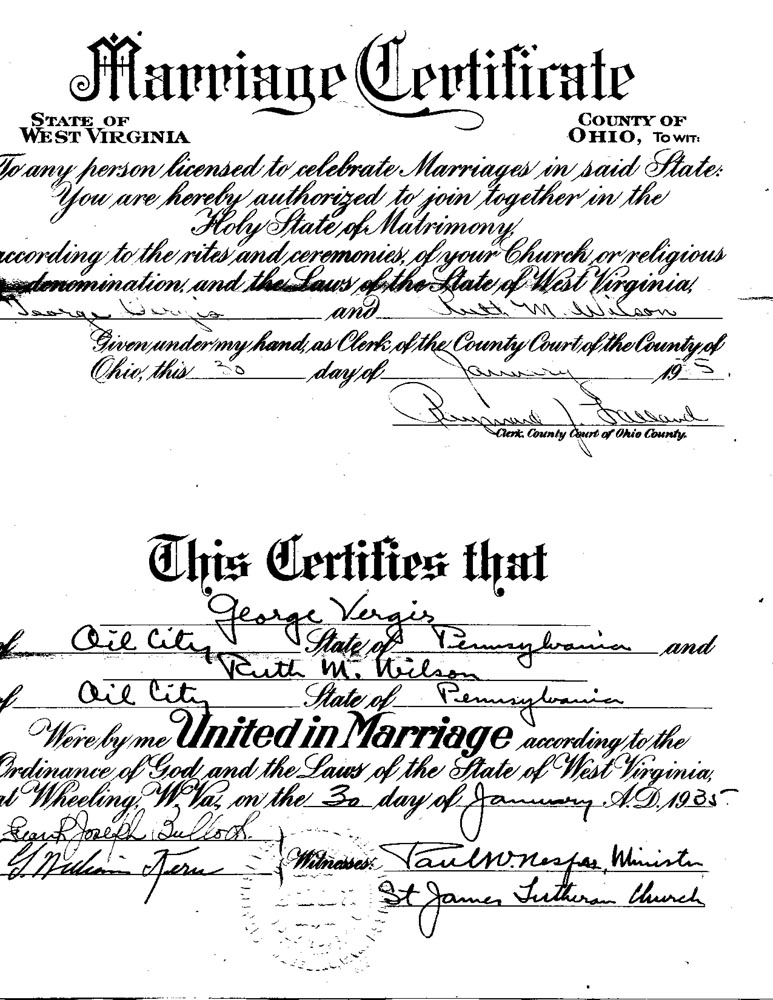 Marriage Certificate
STATE OF
WEST VIRGINIA
COUNTY OF
OHIO, TO WIT:
To any person licensed to celebrate Marriages in said State:
You are hereby authorized to join together in the
Holy State of Matrimony,
according to the rites and ceremonies, of your Church, or religious
denomination, and the Laws of the State of West Virginia,
George Vergis and Ruth M. Wilson
Given, under my hand, as Clerk, of the County Court of the County of
Ohio, this 30 day of January 19 5.
Raymond J.
Clerk, County Court of Ohio County.
This Certifies that
George Vergis
of Oil City, State of Pennsylvania and
Ruth M. Wilson
of Oil City State of Pennsylvania
Were by me United in Marriage according to the
Ordinance of God, and the Laws of the State of West Virginia,
at Wheeling, W. Va., on the 30 day of January A.D. 1935.
Joseph Bulloch.
G. William Kern Witnesses: Paul W. , Minister
St James Lutheran Church